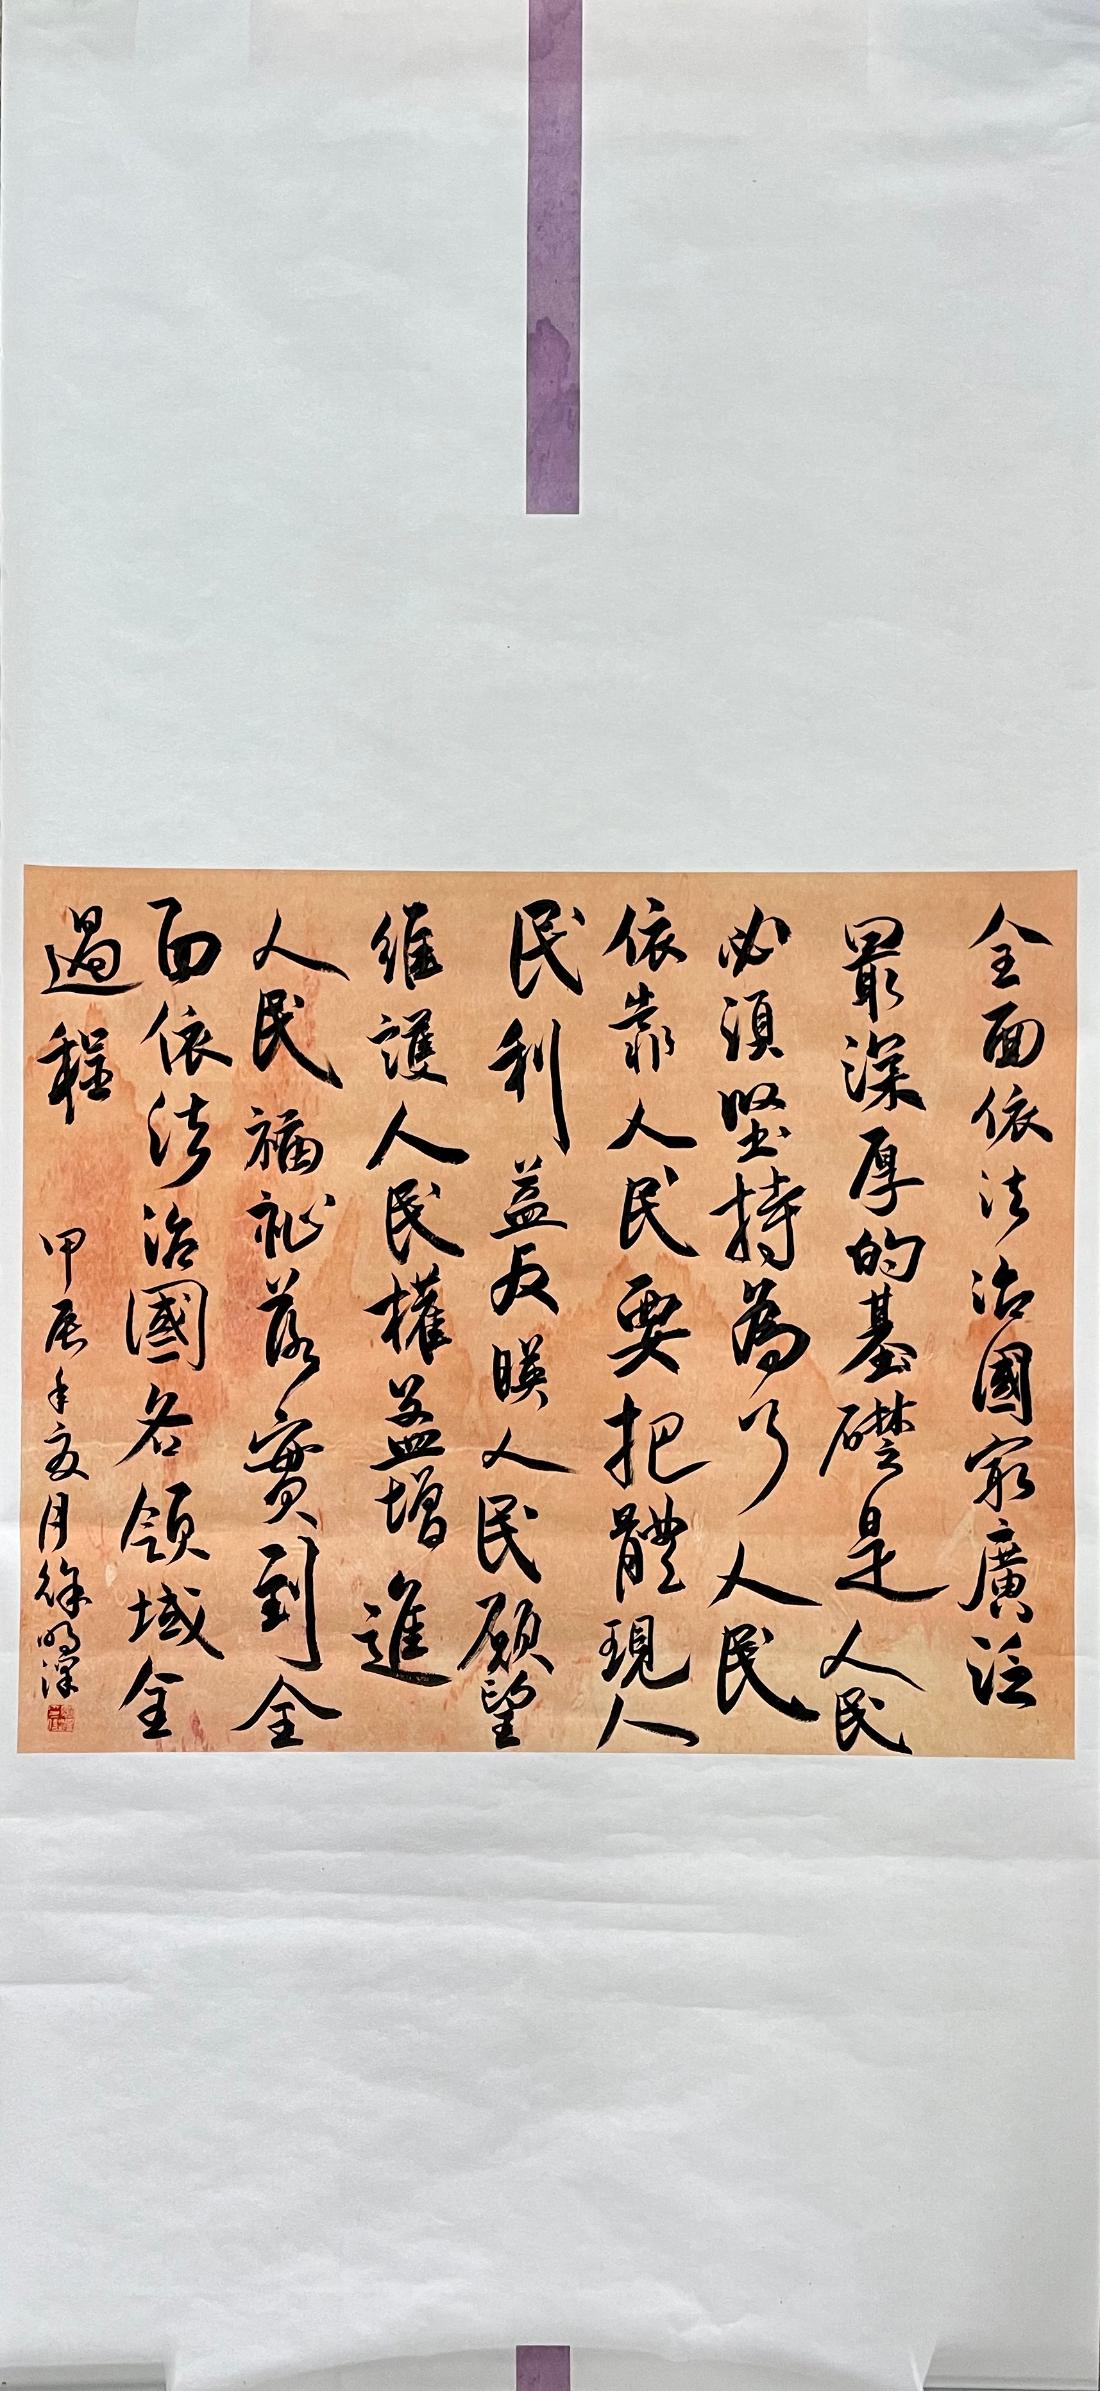 全面依法治國最廣泛
最深厚的基礎是人民
必須堅持為了人民
依靠人民要把體現人
民利益反映人民願望
維護人民權益增進
人民福祉落實到全
面依法治國各領域全
過程
甲辰年夏月徐明澤